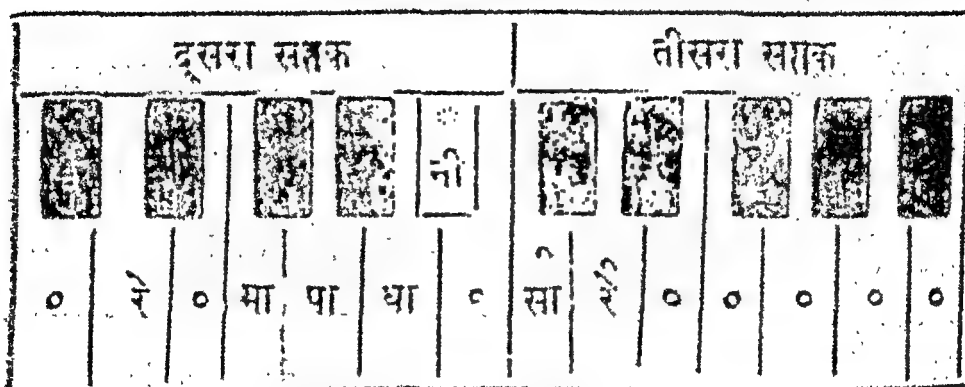 दूसरा सप्तक तीसरा सप्तक
नी
० ० मा पा धा ० सा ० ० ० ० ०